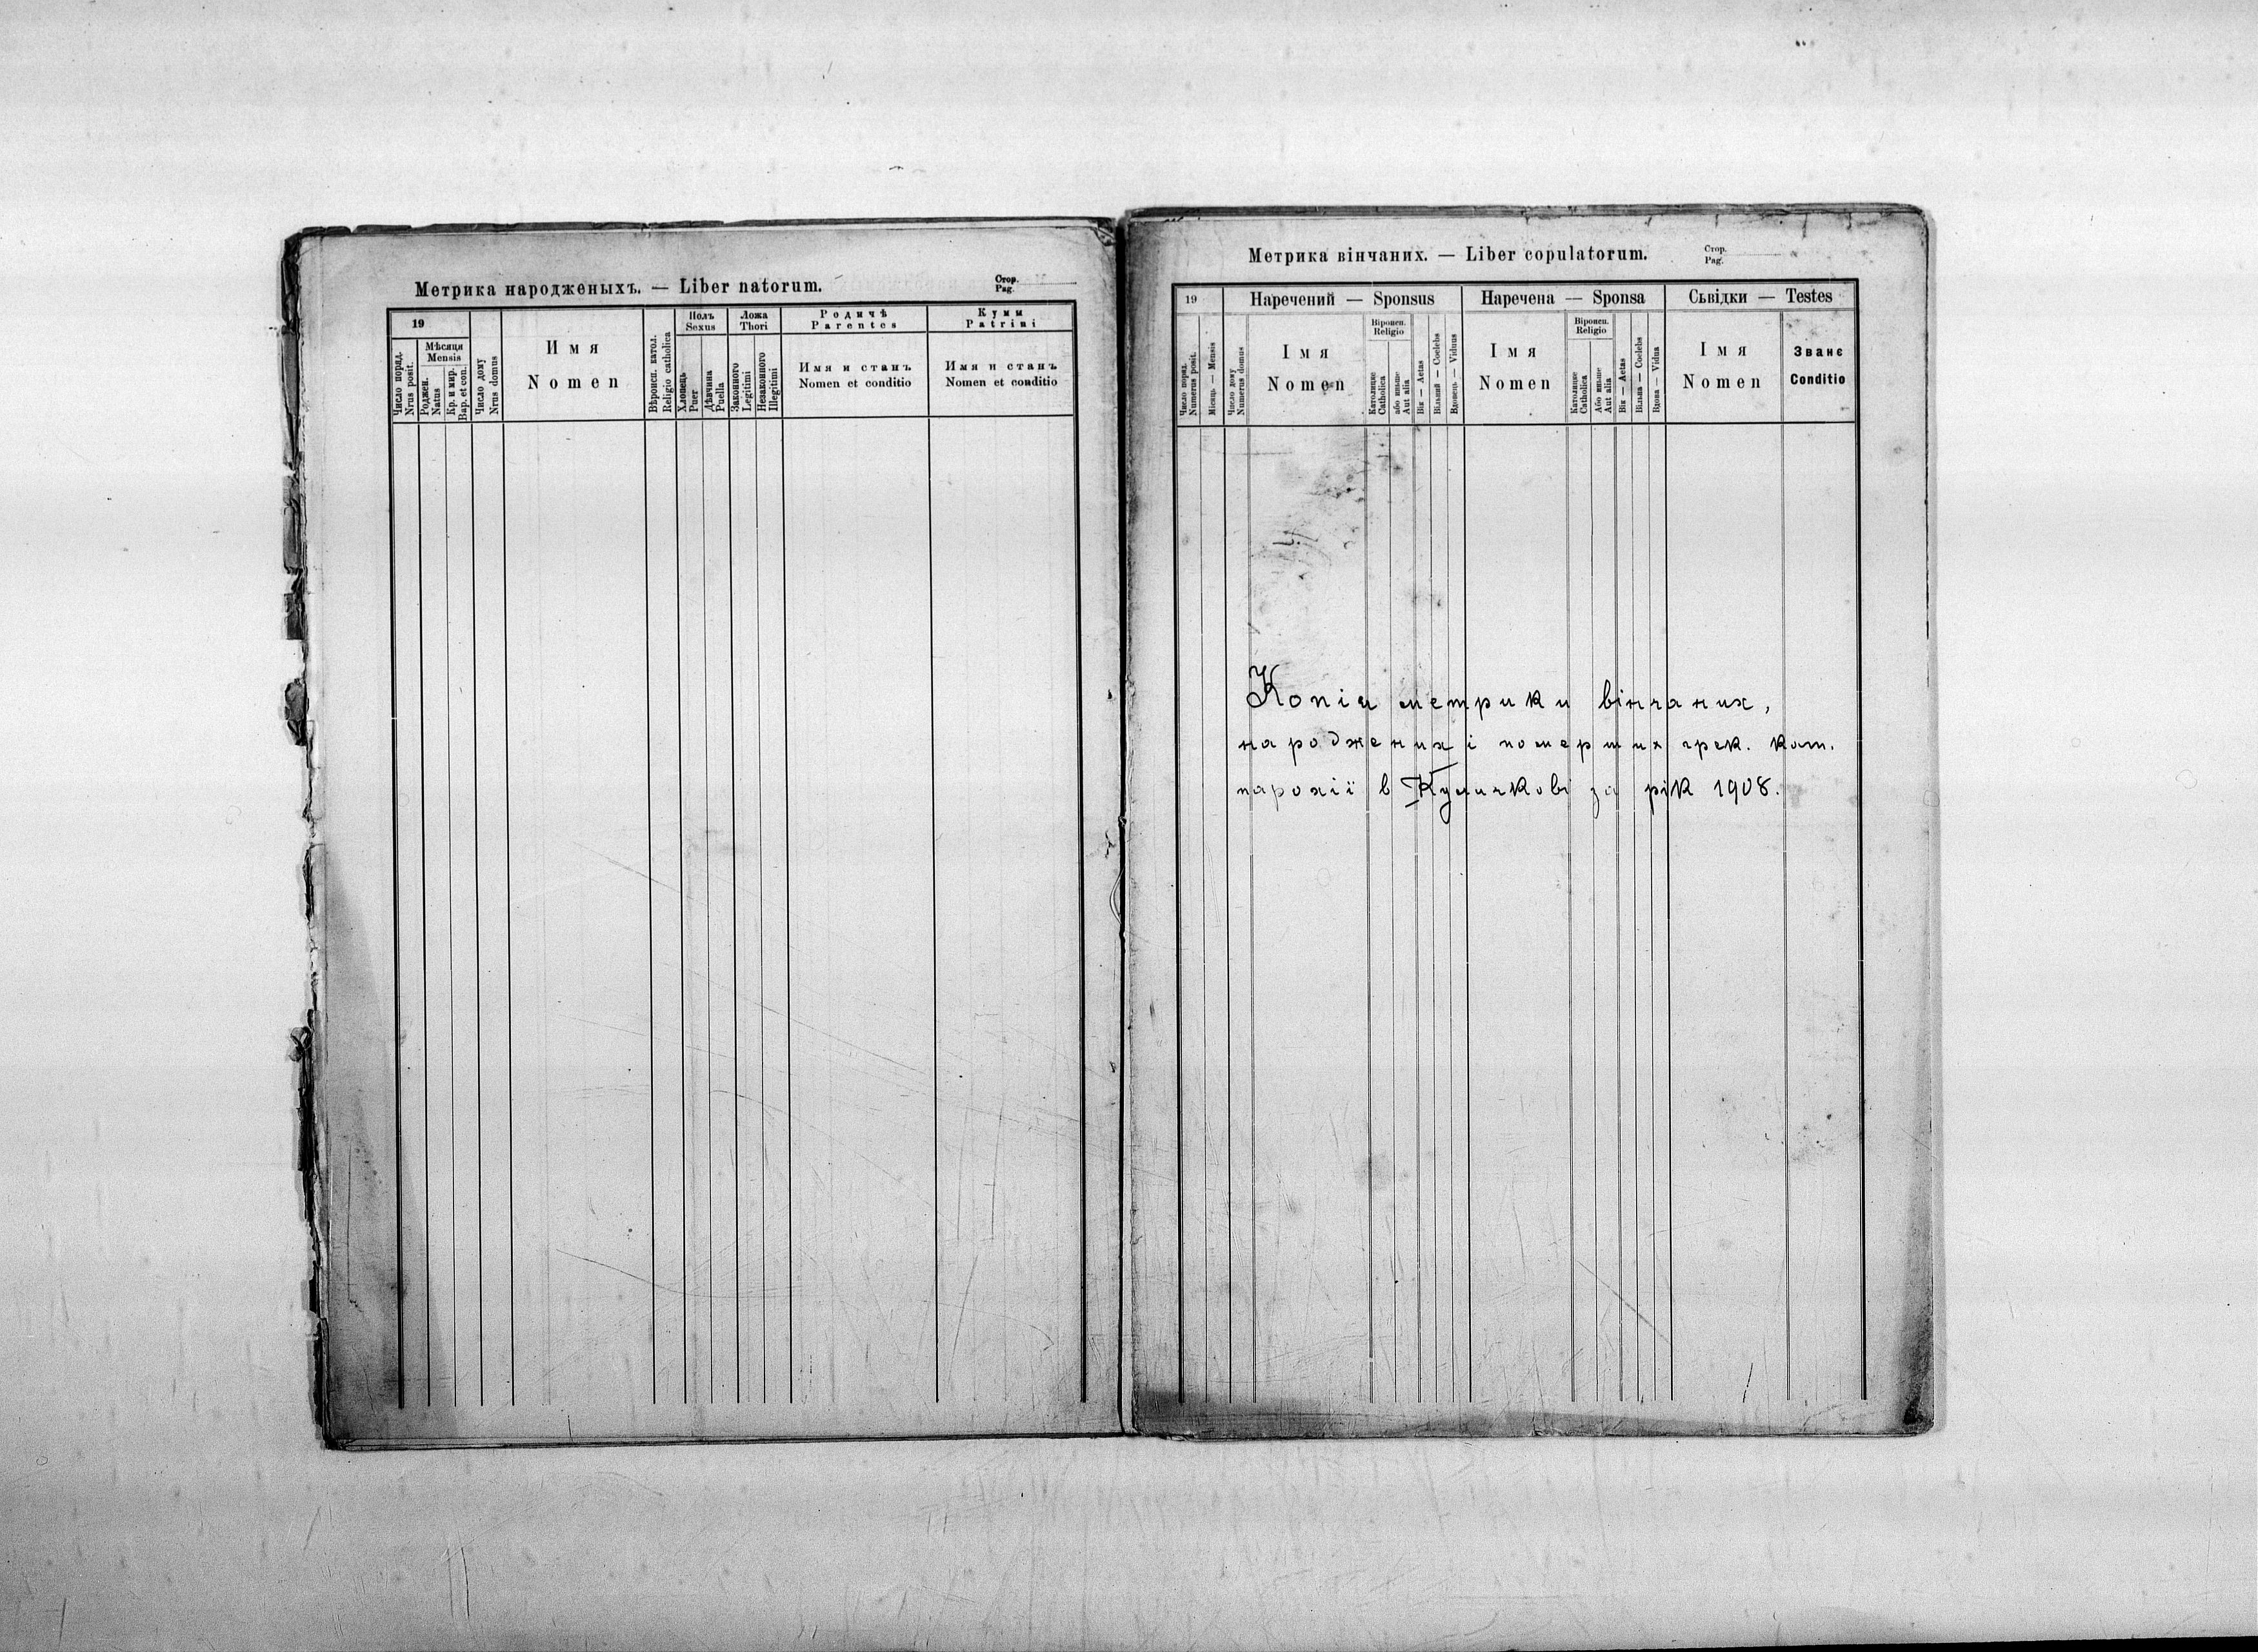 Метрика народженыхъ. — Liber natorum.
Стор.
Pag.
19
Число поряд.
Nrus posit.
Мѣсяця
Mensis
Роджен.
Natus
Кр. и мир.
Bap. et con.
Число дому
Nrus domus
Имя
Nomen
Вѣроисп. катол.
Religio catholica
Полъ
Sexus
Хлопець
Puer
Дѣвчина
Puella
Ложа
Thori
Законного
Legitimi
Незаконного
Illegitimi
Родичѣ
Parentes
Имя и станъ
Nomen et conditio
Кумы
Patrini
Имя и станъ
Nomen et conditio
Метрика вінчаних. — Liber copulatorum.
Стор.
Pag.
19
Число поряд.
Numerus posit.
Місяць — Mensis
Наречений — Sponsus
Число дому
Numerus domus
Імя
Nomen
Віроисп.
Religio
Католицке
Catholica
або иньше
Aut alia
Вік — Aetas
Вільний — Coelebs
Вдовець — Viduus
Наречена — Sponsa
Імя
Nomen
Віроисп.
Religio
Католицке
Catholica
Або иньше
Aut alia
Вік — Aetas
Вільна — Coelebs
Вдова — Vidua
Сьвідки — Testes
Імя
Nomen
Званє
Conditio
Копія метрики вінчаних,
народжених і померших грек. кат.
парохії в Куличкові за рік 1908.